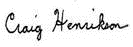 Craig Henrikson